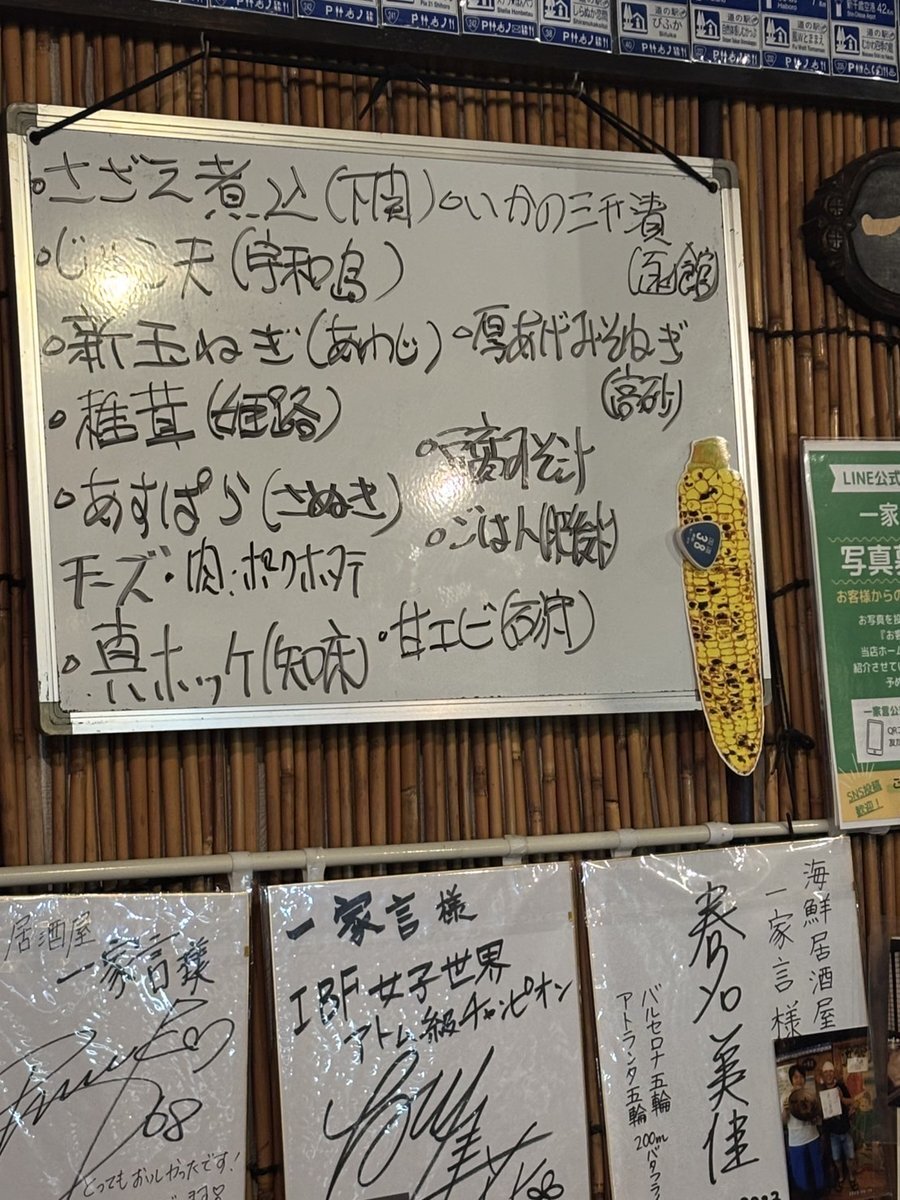 ・さざえ煮込(下関)
・いかの三升漬
(函館)
・じゃこ天(宇和島)
・新玉ねぎ(あわじ)
・厚あげみそねぎ
(高砂)
・椎茸(姫路)
・あすぱら(さぬき)
チーズ・肉・ポークホタテ
みそ汁
・ごはん
・真ホッケ(知床)
・甘エビ(石狩)
LINE公式
一家
写真募
お客様からの
お写真を投
『お客
当店ホーム
紹介させてい
予め
一家言公
QR
SNS投稿
歓迎!
居酒屋
一家言様
68
とってもおいしかったです!
一家言様
IBF女子世界
アトム級チャンピオン
海鮮居酒屋
一家言様
春名美佳
バルセロナ五輪
アトランタ五輪
200mバタフラ
道の駅
びふか
Bifuka